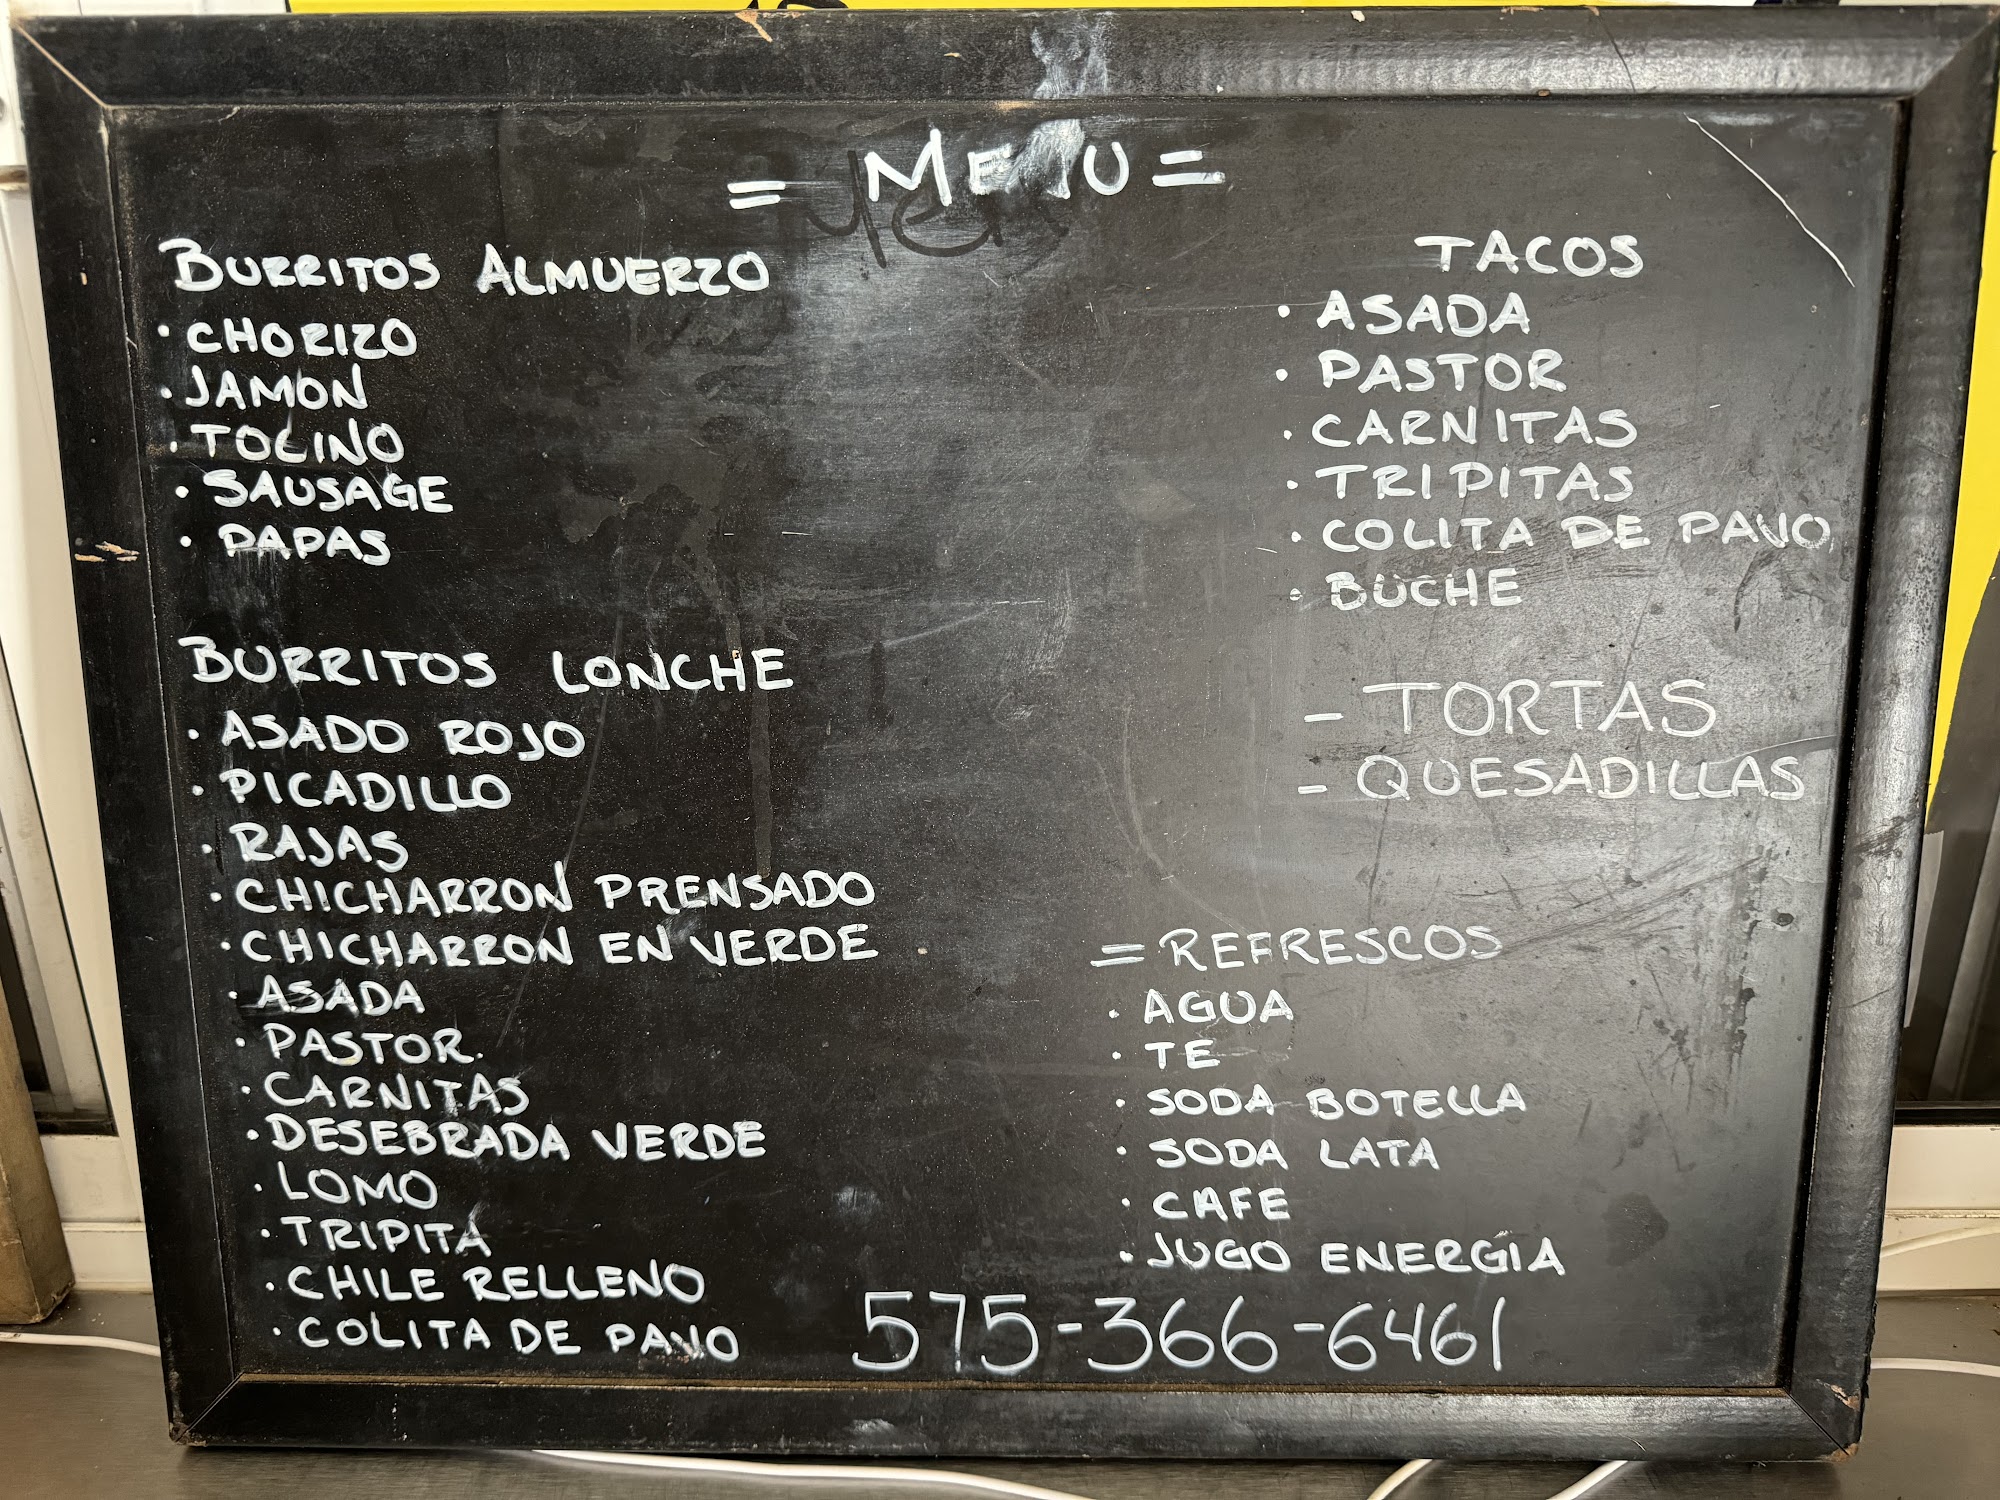 = MENU =
BURRITOS ALMUERZO
• CHORIZO
• JAMON
• TOCINO
• SAUSAGE
• PAPAS
BURRITOS LONCHE
• ASADO ROJO
• PICADILLO
• RAJAS
• CHICHARRON PRENSADO
• CHICHARRON EN VERDE
• ASADA
• PASTOR.
• CARNITAS
• DESEBRADA VERDE
• LOMO
• TRIPITA
• CHILE RELLENO
• COLITA DE PAVO
TACOS
• ASADA
• PASTOR
• CARNITAS
• TRIPITAS
• COLITA DE PAVO
• BUCHE
- TORTAS
- QUESADILLAS
= REFRESCOS
• AGUA
• TE
• SODA BOTELLA
• SODA LATA
• CAFE
• JUGO ENERGIA
575-366-6461